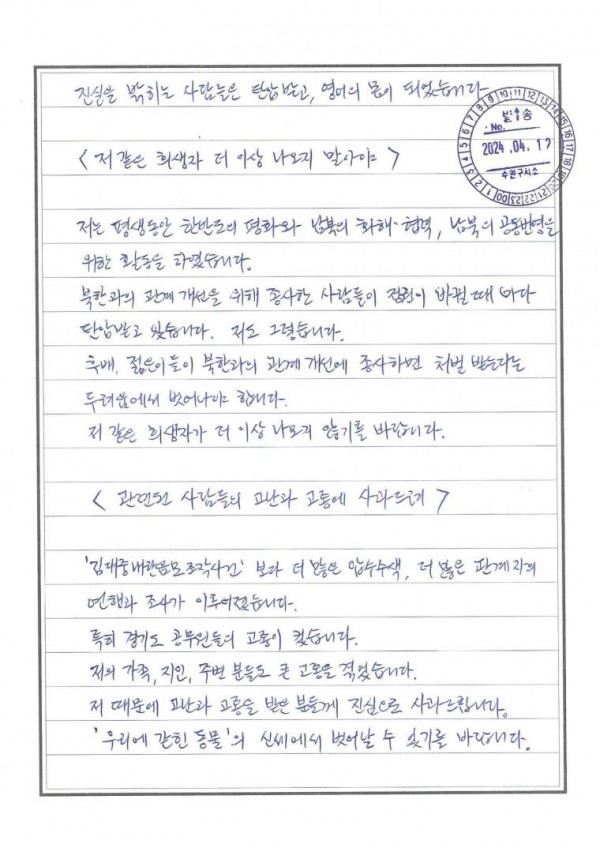 진실을 밝히는 사람들은 탄압받고, 영어의 몸이 되었습니다
발송
No.
2024.04.17
수원구치소
< 저 같은 희생자 더 이상 나오지 말아야 >
저는 평생동안 한반도의 평화와 남북의 화해·협력, 남북의 공동번영을
위한 활동을 하였습니다.
북한과의 관계 개선을 위해 종사한 사람들이 정권이 바뀔 때 마다
탄압받고 있습니다. 저도 그렇습니다.
후배, 젊은이들이 북한과의 관계 개선에 종사하면 처벌 받는다는
두려움에서 벗어나야 합니다.
저 같은 희생자가 더 이상 나오지 않기를 바랍니다.
< 관련된 사람들의 고난과 고통에 사과드려 >
'김대중내란음모조작사건' 보다 더 많은 압수수색, 더 많은 관계자의
연행과 조사가 이루어졌습니다.
특히 경기도 공무원들의 고통이 컸습니다.
저의 가족, 지인, 주변 분들도 큰 고통을 겪었습니다.
저 때문에 고난과 고통을 받은 분들께 진심으로 사과드립니다.
'우리에 갇힌 동물'의 신세에서 벗어날 수 있기를 바랍니다.